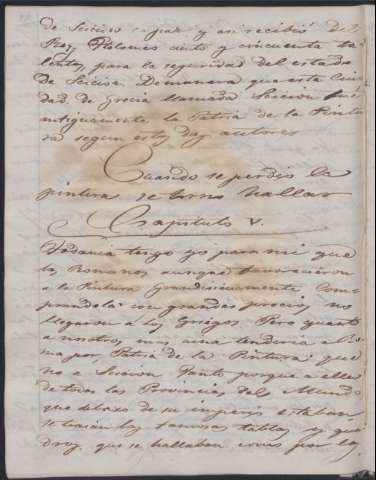 de Scicion e paz y asi recibio del
Rey Ptolomeo ciento y cincuenta ta-
lentos, para la seguridad del estado
de Scicion. Demanera que esta Ciu
dad de Grecia llamada Scicion fué
antiguamente la Patria de la Pintu
ra segun estos dos autores
Cuando se perdió la
pintura se torno hallar
Capitulo V.
Todavia tengo yo para mi que
los Romanos aunque favorecieron
a la Pintura Grandisimamente Com-
prandola con grandes precios, no
llegaron a los Griegos. Pero quanto
a nosotros, mas aina tendria a Ro
ma por Patria de la Pintura que
no a Scicion tanto porque a ella
de todas las Provincias del Mundo
que debaxo de su imperio estaban
se traian las famosas tablas y qua
dros, que se hallaban como por los